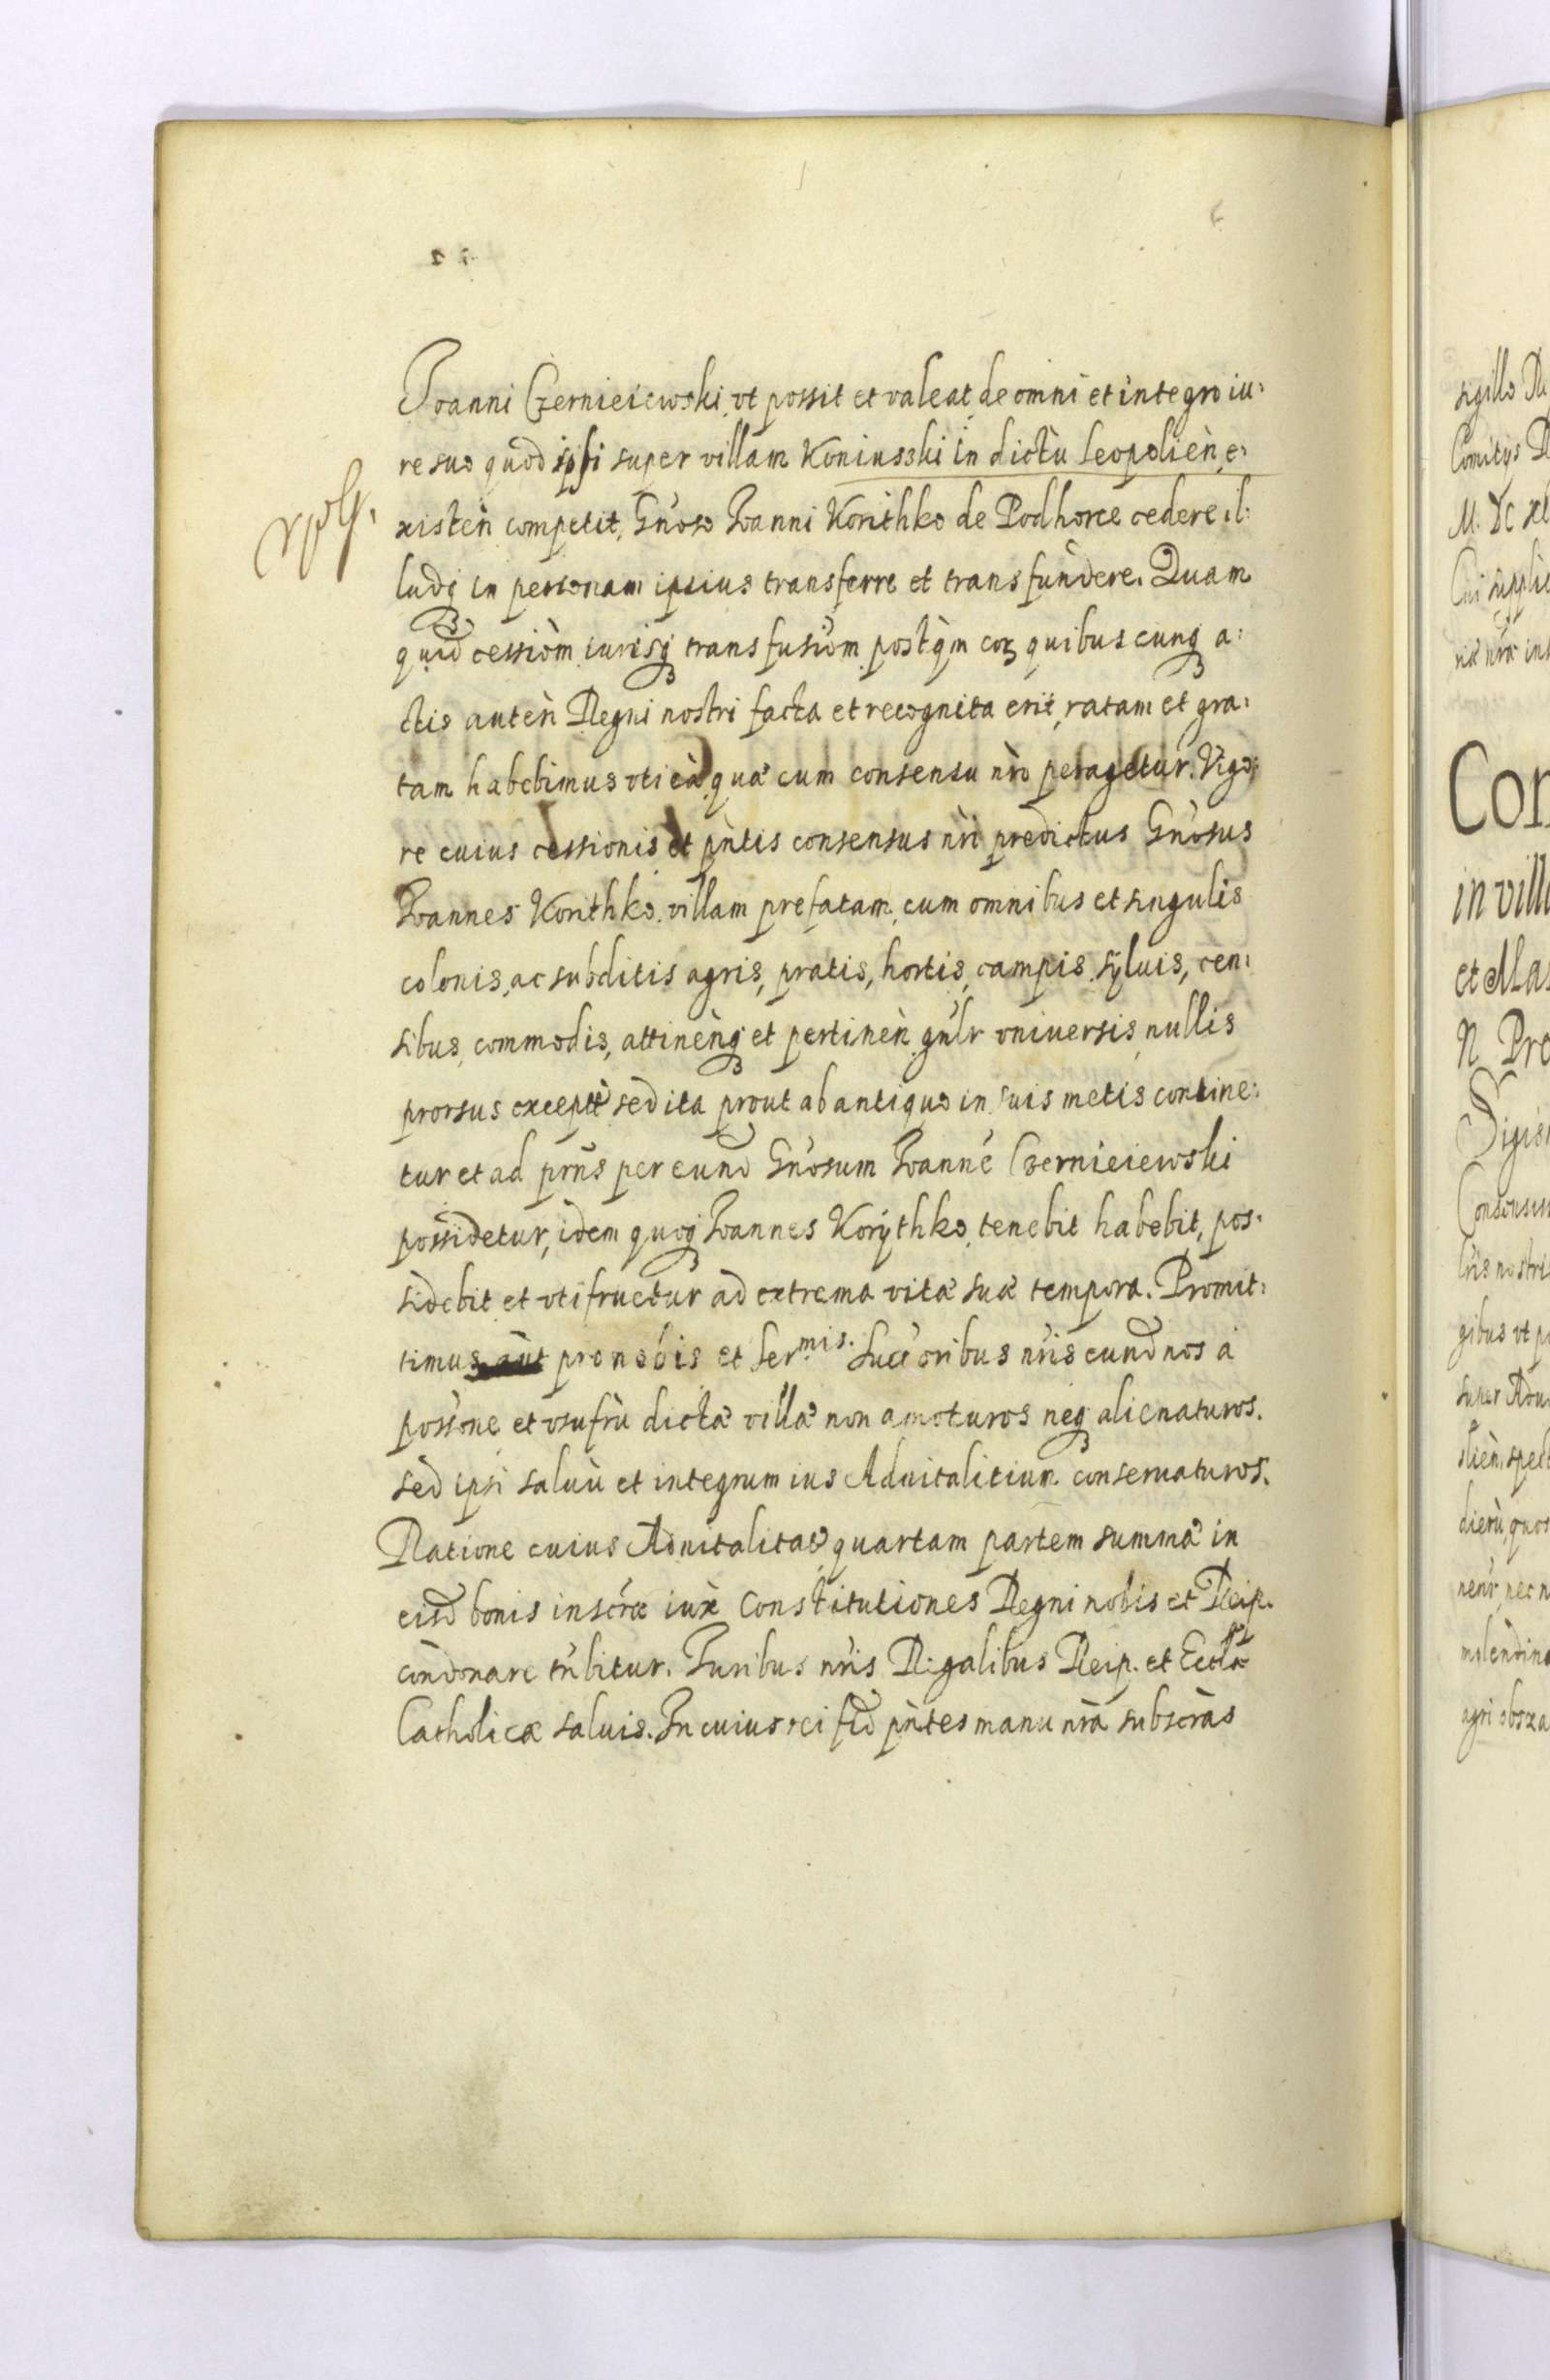 Joanni Czernieiewski, vt possit et valeat de omni et integro iu:
re suo quod ipsi super villam Koniusski in dictù Leopolien̄ e:
xisten̄ competit, Gn̄oso Joanni Korithko de Podhorce cedere, il:
ludq̢ in personam ipsius transferre et transfundere. Quam
quid̄ cessiōm iurisq̢ transfusiōm postq̄m corā quibuscunq̢ a:
ctis auten̄ Regni nostri facta et recognita erit, ratam et gra:
tam habebimus vti eā quæ cum consensu nr̄o peragetur. Vigo:
re cuius cessionis et pn̄tis consensus nr̄i predictus Gn̄osus
Joannes Korithko, villam prefatam, cum omnibus et singulis
colonis, ac subditis agris, pratis, hortis, campis, syluis, cen:
sibus, commodis, attinen̄q̢ et pertinen̄ gn̄lr vniuersis, nullis
prorsus exceptis sed ita prout ab antiquo in suis metis contine:
tur et ad prn̄s per eund̄ Gn̄osum Joannē Czernieiewski
possidetur, idem quoq̢ Joannes Korÿthko, tenebit habebit, pos:
sidebit et vtifruetur ad extrema vitæ suæ tempora. Promit:
timus pro nobis et Ser.mis Succ̄oribus nr̄is eund̄ nos à
poss̄one et vsufrù dictæ villæ non amoturos neq̢ alienaturos.
sed ipsi saluū et integrum ius Aduitalitium conseruaturos.
Ratione cuius Aduitalitatis quartam partem summæ in
eisd̄ bonis inscr̄æ iux̄ Constitutiones Regni nobis et Reip.
condonare tn̄bitur. Juribus nr̄is Regalibus Reip. et Eccl̄æ
Catholicæ saluis. In cuius rei fid̄ pn̄tes manu nr̄a subscr̄as
sigillo
Comitijs
Cui
Con
in vill
et Ma
N Pre
Consensu
lr̄is nostri
gibus vt
super Adu
nec n
molendino
agri